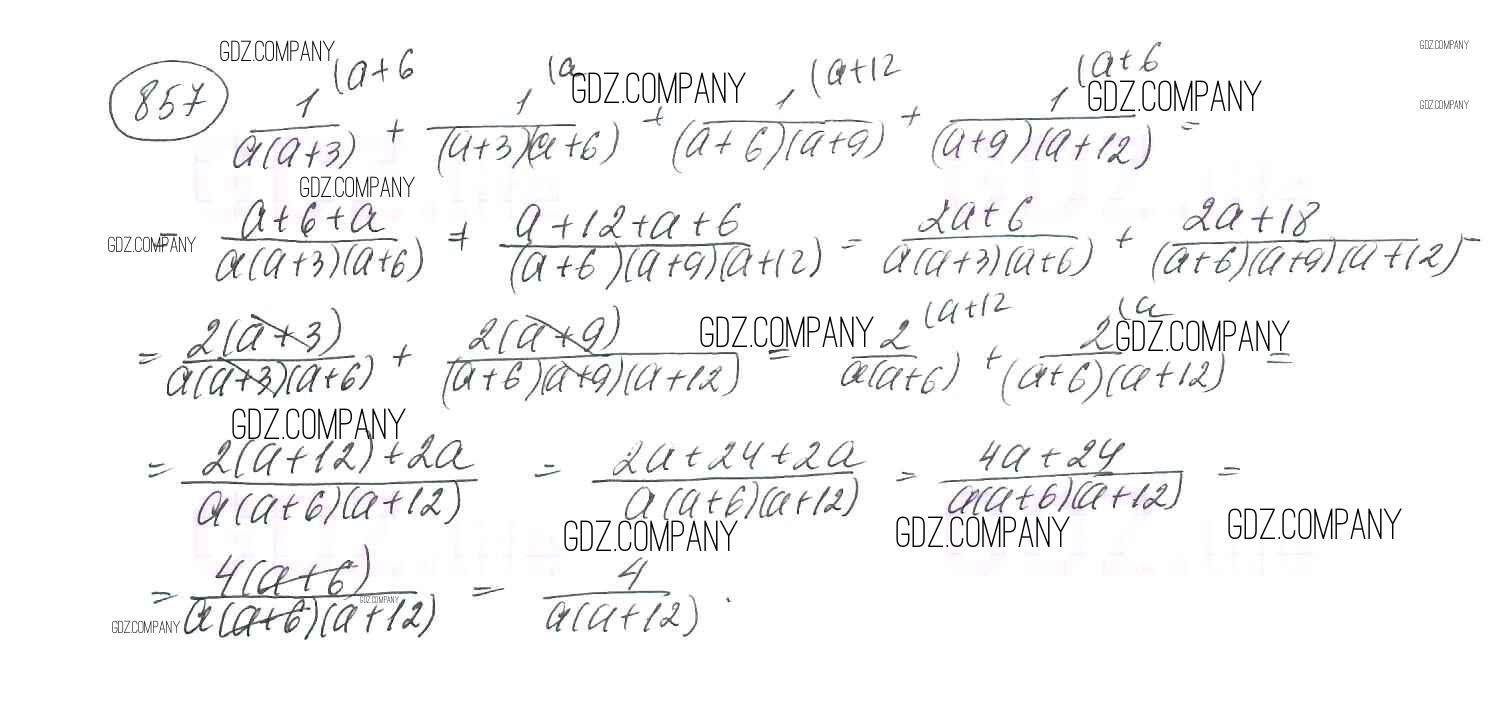 GDZ.COMPANY
857 1/(a(a+3)) (a+6 + 1/((a+3)(a+6)) (a + 1/((a+6)(a+9)) (a+12 + 1/((a+9)(a+12)) (a+6 =
GDZ.COMPANY GDZ.COMPANY GDZ.COMPANY GDZ.COMPANY
GDZ.COMPANY
= (a+6+a)/(a(a+3)(a+6)) + (a+12+a+6)/((a+6)(a+9)(a+12)) = (2a+6)/(a(a+3)(a+6)) + (2a+18)/((a+6)(a+9)(a+12)) -
GDZ.COMPANY
= 2(a+3)/(a(a+3)(a+6)) + 2(a+9)/((a+6)(a+9)(a+12)) = 2/(a(a+6)) (a+12 + 2/((a+6)(a+12)) (a =
GDZ.COMPANY GDZ.COMPANY
GDZ.COMPANY
= (2(a+12)+2a)/(a(a+6)(a+12)) = (2a+24+2a)/(a(a+6)(a+12)) = (4a+24)/(a(a+6)(a+12)) =
GDZ.COMPANY GDZ.COMPANY GDZ.COMPANY
= 4(a+6)/(a(a+6)(a+12)) = 4/(a(a+12)).
GDZ.COMPANY GDZ.COMPANY